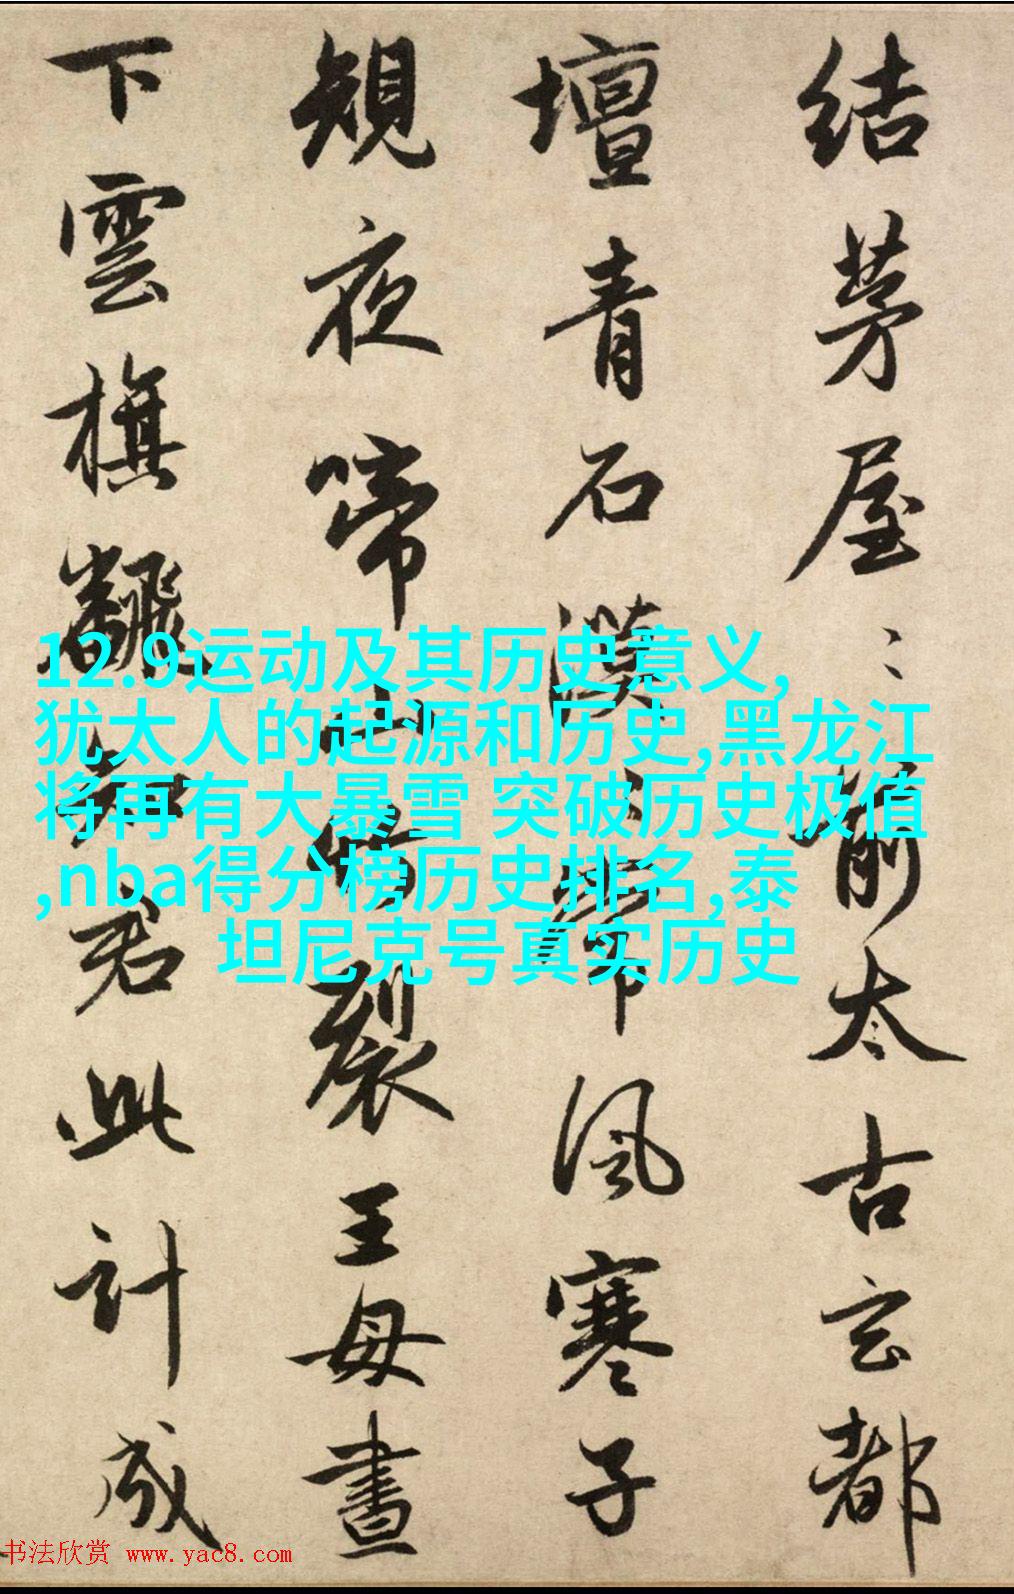 结茅屋〻前太古玄都
壇青石漠〻常風寒子
規夜啼山竹裂王母晝
下雲旗飜知君此計成
12.9运动及其历史意义,
犹太人的起源和历史,黑龙江
将再有大暴雪 突破历史极值
,nba得分榜历史排名,泰
坦尼克号真实历史
书法欣赏 www.yac8.com